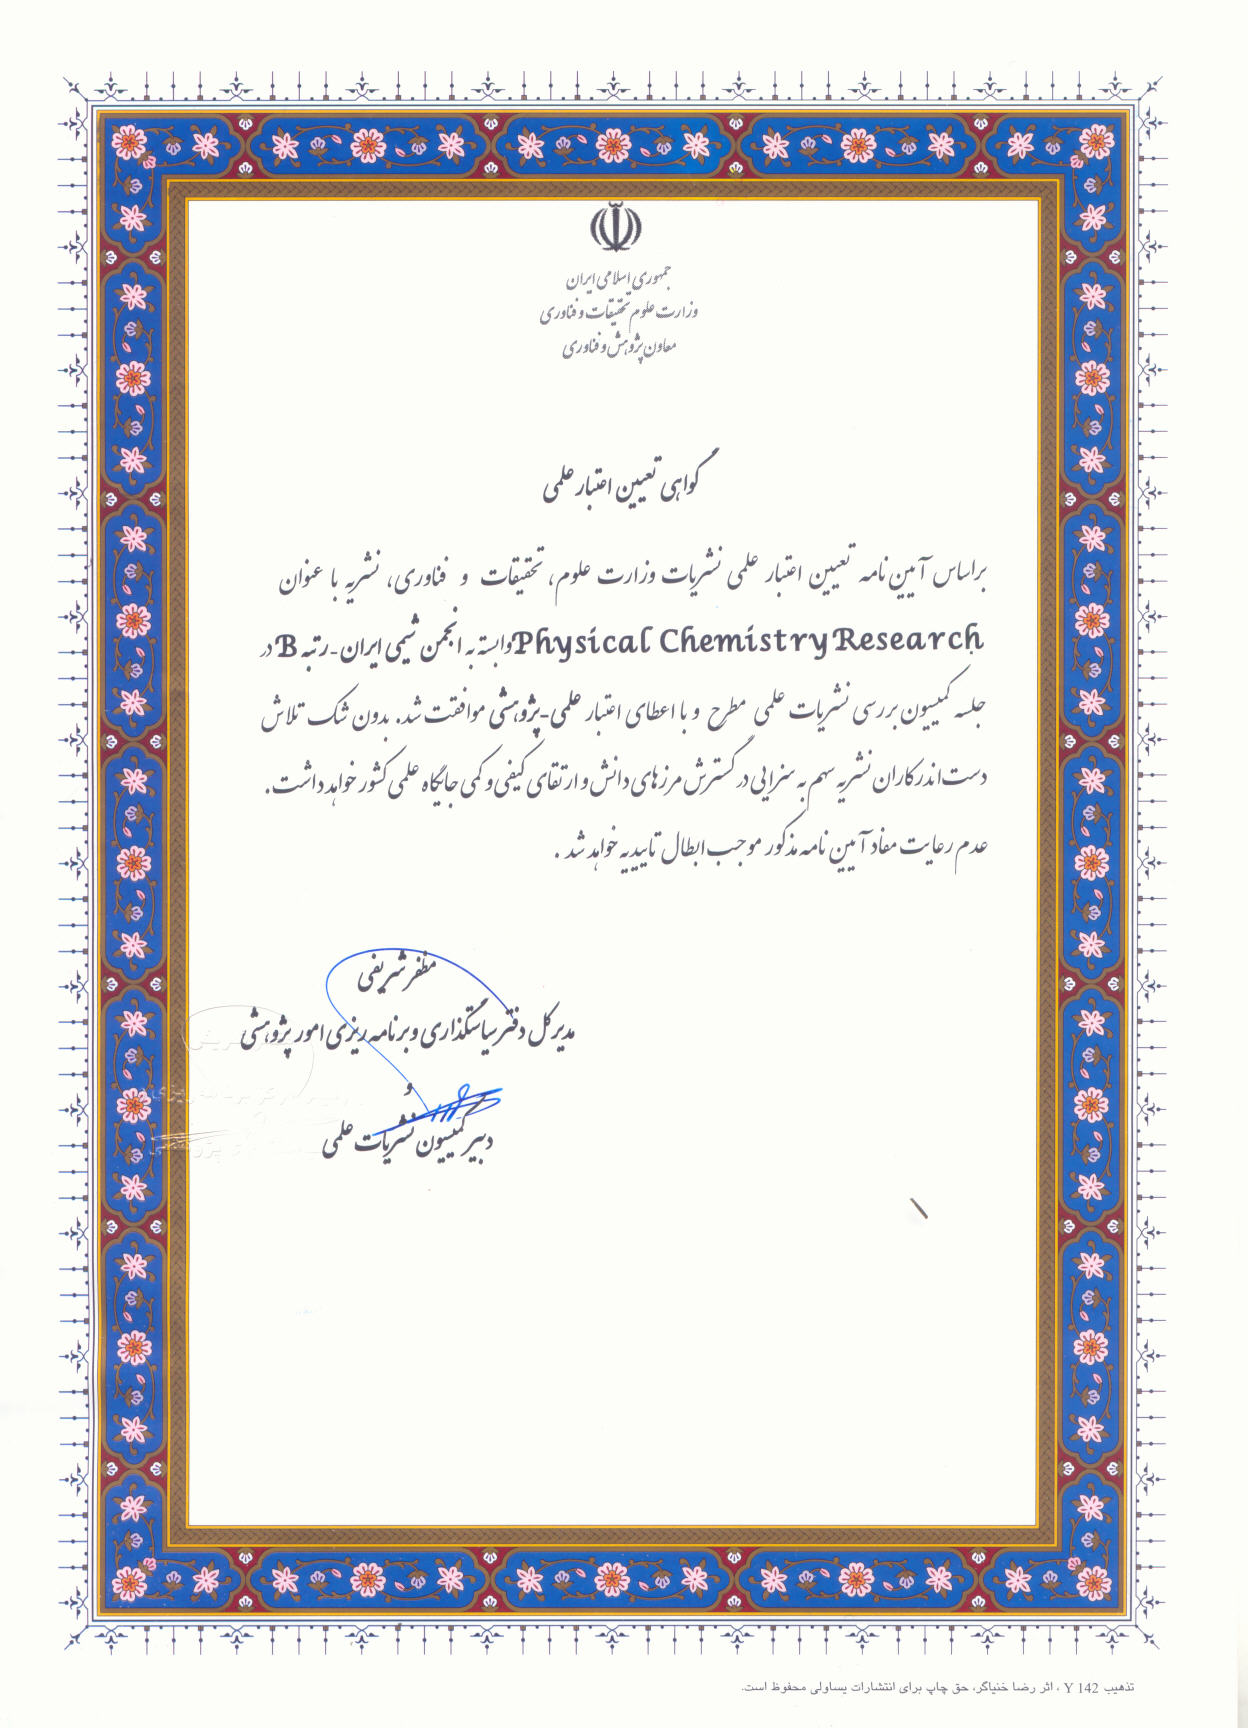 جمهوری اسلامی ایران
وزارت علوم تحقیقات و فناوری
معاون پژوهش و فناوری
گواهی تعیین اعتبار علمی
براساس آیین نامه تعیین اعتبار علمی نشریات وزارت علوم، تحقیقات و فناوری، نشریه با عنوان
Physical Chemistry Research وابسته به انجمن شیمی ایران-رتبه B در
جلسه کمیسیون بررسی نشریات علمی مطرح و با اعطای اعتبار علمی-پژوهشی موافقت شد. بدون شک تلاش
دست‌اندرکاران نشریه سهم به سزایی در گسترش مرزهای دانش و ارتقای کیفی و کمی جایگاه علمی کشور خواهد داشت.
عدم رعایت مفاد آیین نامه مذکور موجب ابطال تاییدیه خواهد شد .
مظفر شریفی
مدیرکل دفتر سیاستگذاری و برنامه ریزی امور پژوهشی
و
دبیر کمیسیون نشریات علمی
تذهیب Y 142 ، اثر رضا خنیاگر، حق چاپ برای انتشارات یساولی محفوظ است.